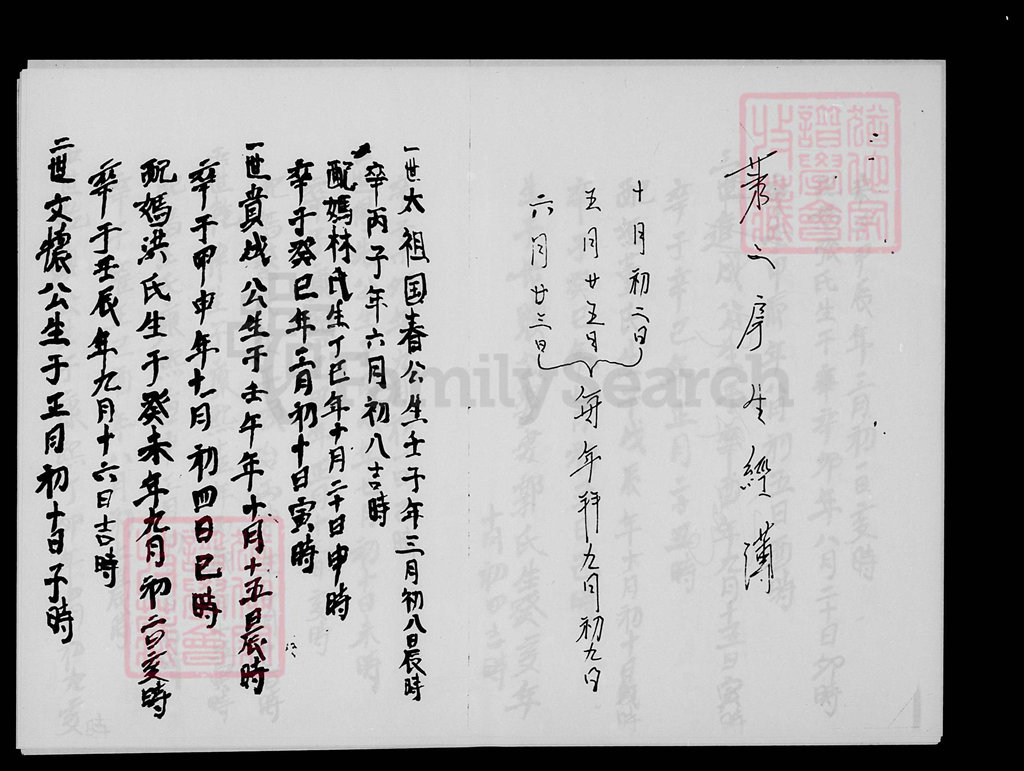 二
葉之庠生經薄
十月初二日
五月廿五日
六月廿三日
每年拜九月初九日
一世太祖国春公生壬子年三月初八日辰時
卒丙子年六月初八吉時
配媽林氏生丁巳年十月二十日申時
卒于癸巳年三月初十日寅時
一世貴成公生于壬午年十月十五日辰時
卒于甲申年十一月初四日巳時
配媽洪氏生于癸未年九月初二日亥時
卒于壬辰年九月十六日吉時
二世文懷公生于正月初十日子時
FamilySearch